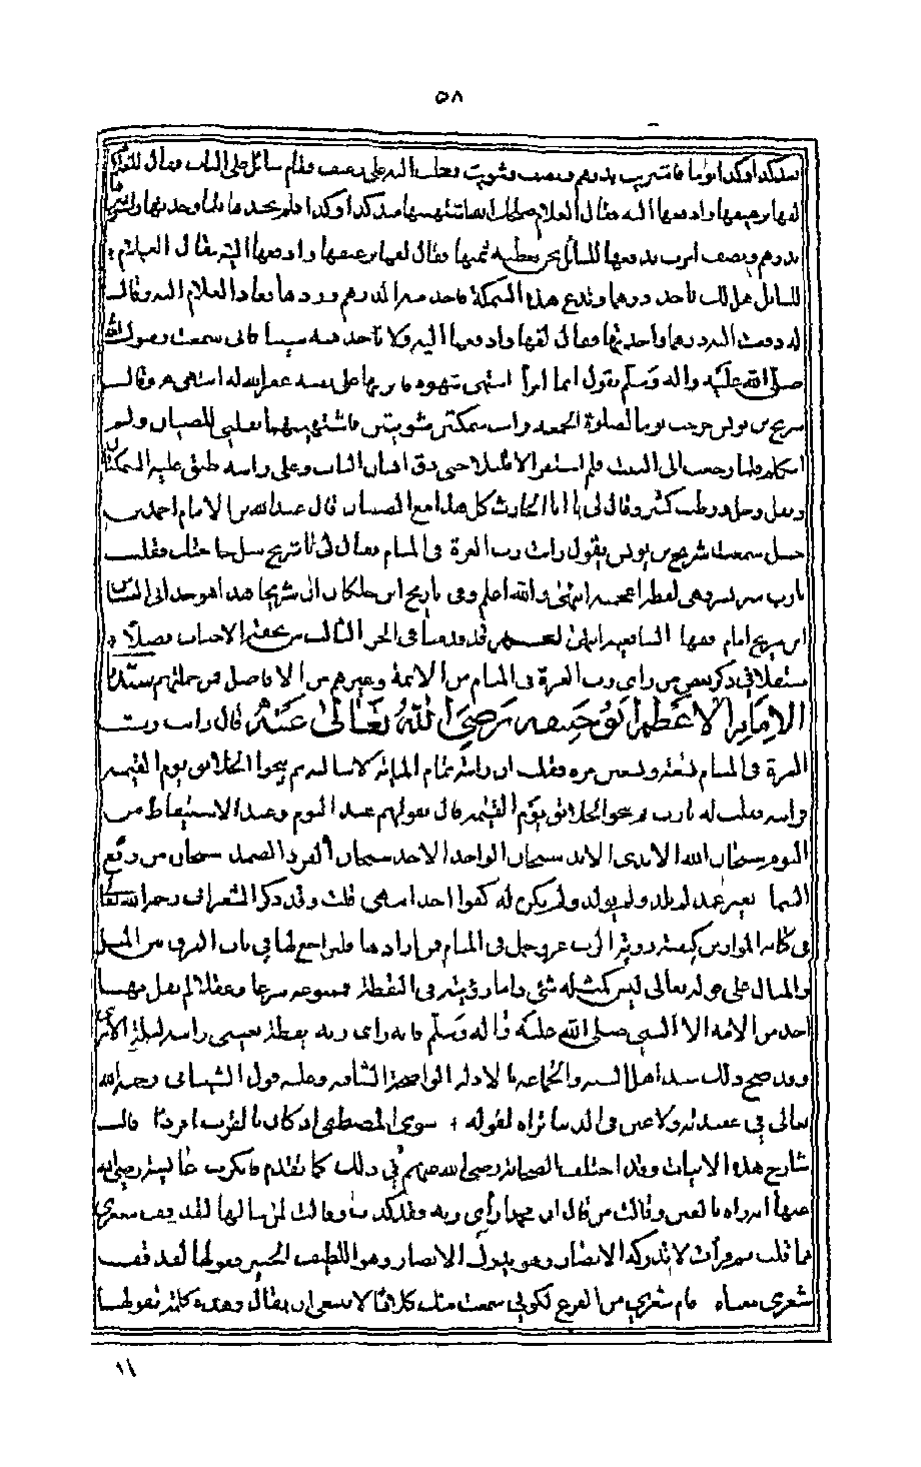 ٥٨
منذ كذا وكذا يوما فاشتريت بدرهم ونصف وشويت وحملت اليه على رغيف فقام سائل على الباب فقال للغلام
لفها برغيفها وادفعها اليه فقال الغلام اصلحك الله اشتهيتها منذ كذا وكذا فلم نجدها فلما وجدتها واشتريناها
بدرهم ونصف امرت بدفعها للسائل نحن نعطيه ثمنها فقال لفها برغيفها وادفعها اليه فقال الغلام
للسائل هل لك تاخذ درهما وتدع هذه السمكة فاخذ منه الدرهم وردها فعاد الغلام اليه وقال
له دفعت اليه درهما واخذتها فقال لفها وادفعها اليه ولا تاخذ منه شيئا فاني سمعت رسول الله
صلى الله عليه واله وسلم يقول ايما امرأ اشتهى شهوة فاثر بها على نفسه غفر الله له انتهى وقال
سريج بن يونس خرجت يوما لصلوة الجمعة ورايت سمكتين مشويتين فاشتهيتهما بقلبي للصبيان ولم
اتكلم فلما رجعت الى البيت فلم استقر الا قليلا حتى دق انسان الباب وعلى راسه طبق عليه السمكتان
وبقل وخل ورطب كثير وقال لي يا ابا الحارث كل هذا مع الصبيان قال عبد الله بن الامام احمد بن
حنبل سمعت سريج بن يونس يقول رايت رب العزة في المنام فقال لي يا سريج سل حاجتك فقلت
يارب سر بسر وهي لفظة اعجمية انتهى والله اعلم وفي تاريخ ابن خلكان ان سريجا هذا هو جد ابي العباس
ابن سريج امام فقهاء الشافعية انتهى قد قدمنا في الجزء الثالث من
مستقلا في ذكر بعض من راى رب العزة في المنام من الائمة وغيرهم من الافاضل فمن جملتهم سيدنا
الامام الاعظم ابو حنيفة رضي الله تعالى عنه قال رايت رب
العزة في المنام تسعة وتسعين مرة فقلت ان رايته تمام المائة لاسالنه بم ينجوا الخلائق يوم القيمة
فرايته فقلت له يارب بم ينجو الخلائق يوم القيمة قال بقولهم عند النوم وعند الاستيقاظ من
النوم سبحان الله الابدي الابد سبحان الواحد الاحد سبحان الفرد الصمد سبحان من رفع
السما بغير عمد لم يلد ولم يولد ولم يكن له كفوا احد انتهى قلت وقد ذكر الشعراني رحمه الله تعالى
في كتابه كيفية رؤية الرب عز وجل في المنام فمن ارادها فليراجعها في باب الفرق بين المثل
والمثال على قوله تعالى ليس كمثله شئ واما رؤيته في اليقظة فممنوعة شرعا وعقلا لم يقل بها
احد من الامة الا النبي صلى الله عليه واله وسلم فانه راى ربه يقظة بعيني راسه ليلة الاسرى
وقد صح ذلك عند اهل السنة والجماعة بالادلة الواضحة الثابتة وعليه قول الشيباني رحمه الله
تعالى في عقيدته ولا عين في الدنيا تراه لقوله ؛ سوى المصطفى اذ كان بالقرب افردا قال
شارح هذه الابيات وقد اختلف الصحابة رضي الله عنهم في ذلك كما تقدم فانكرت عائشة رضي الله
عنها انه راه بالعين وقالت من قال ان محمدا رأى ربه فقد كذب وقالت لمن سالها لقد قف شعري
مما قلت ثم قرأت لا تدركه الابصار وهو يدرك الابصار وهو اللطيف الخبير وقولها لقد قف
شعري معناه قام شعري من الفزع لكوني سمعت منك كلاما لا ينبغي ان يقال وهذه كلمة تقولها